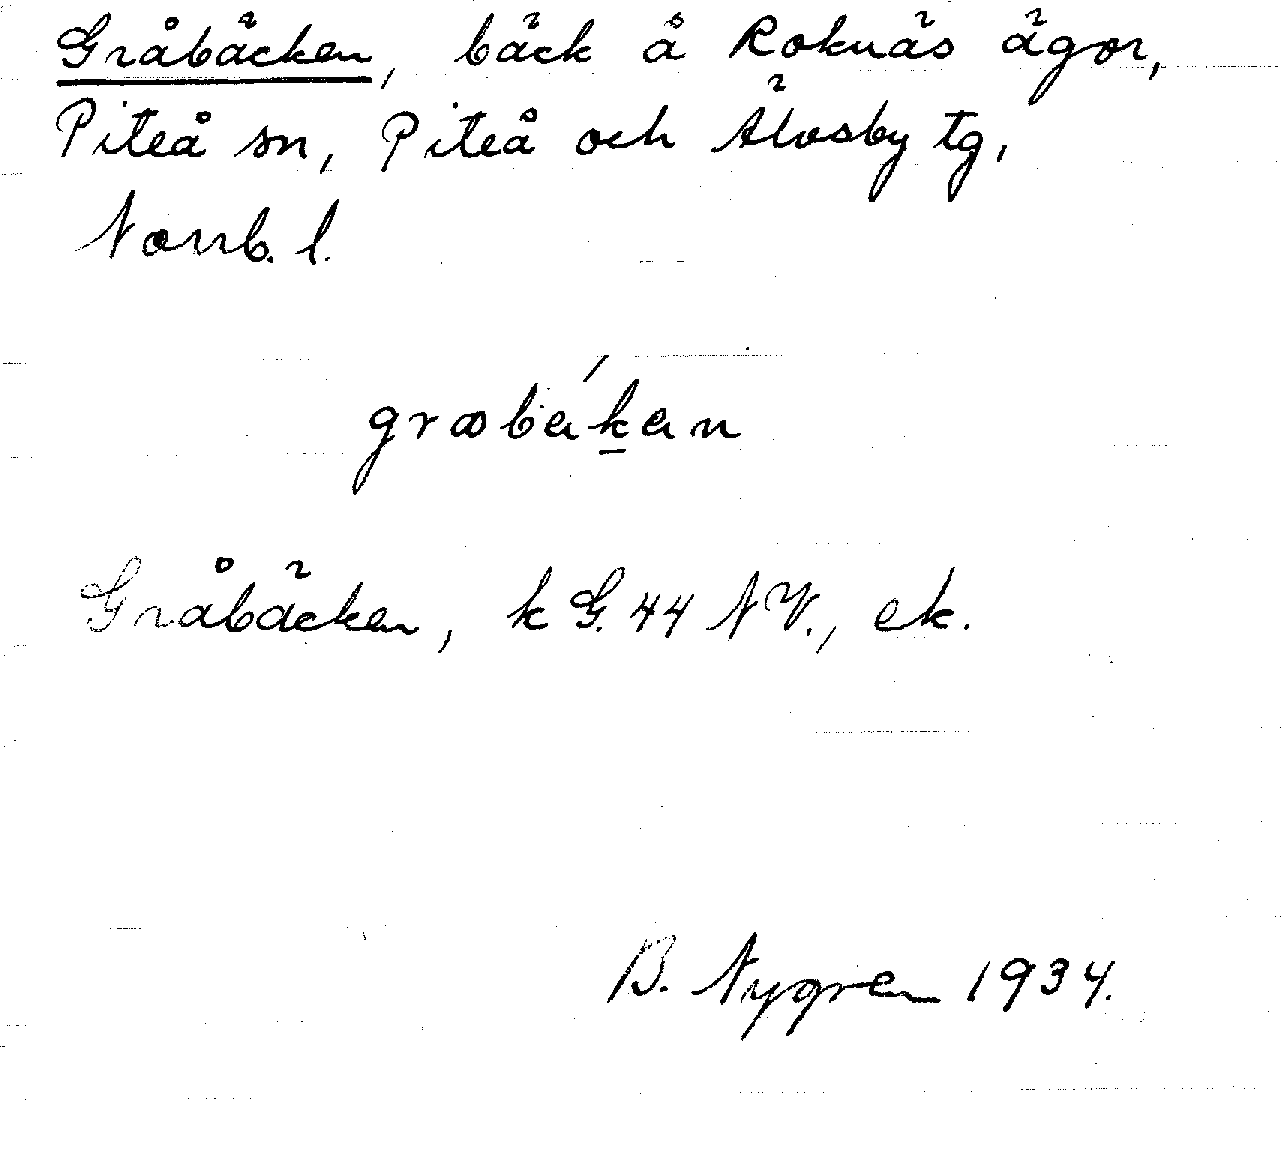 Gråbäcken, bäck å Roknäs ägor,
Piteå sn, Piteå och Älvsby tg,
Norrb. l.
Gråbäcken, k G. 44 NV., ek.
B. Nygren 1934.